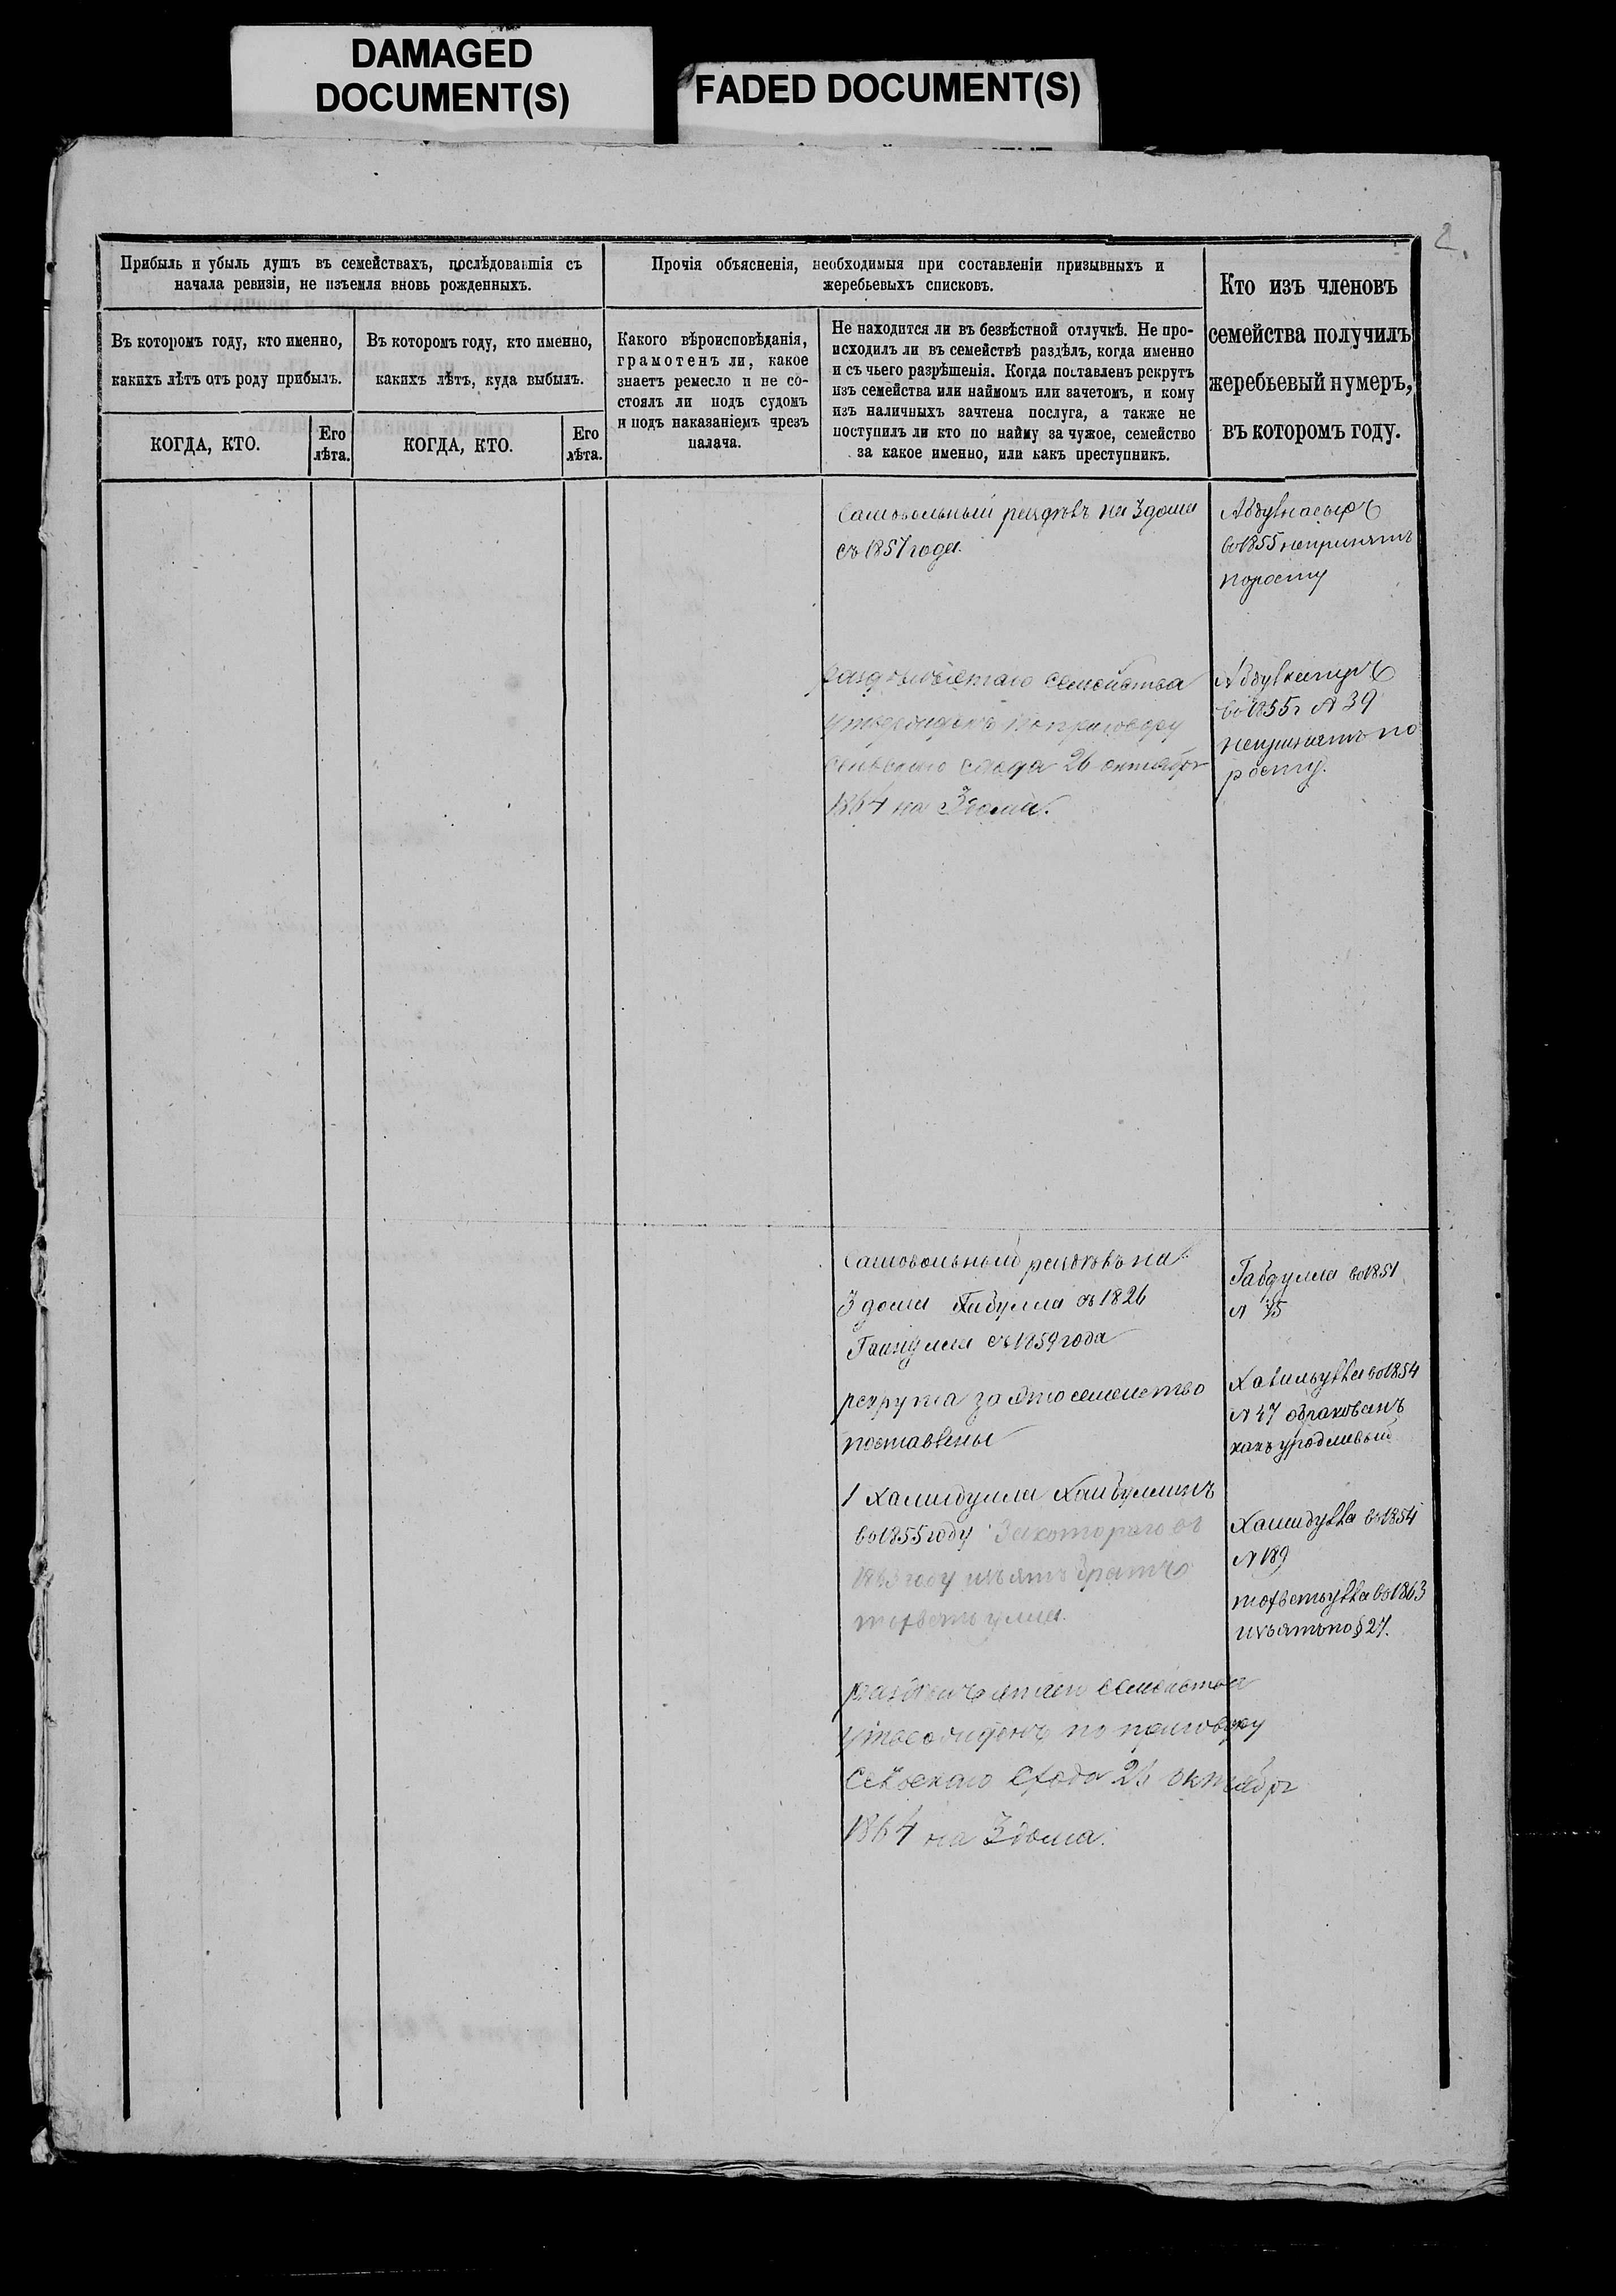 DAMAGED
DOCUMENT(S)
FADED DOCUMENT(S)
2.
Прибыль и убыль душъ въ семействахъ, послѣдовавшія съ
начала ревизіи, не изъемля вновь рожденныхъ.
Въ которомъ году, кто именно,
какихъ лѣтъ отъ роду прибылъ.
КОГДА, КТО.
Его
лѣта.
Въ которомъ году, кто именно,
какихъ лѣтъ, куда выбылъ.
КОГДА, КТО.
Его
лѣта.
Прочія объясненія, необходимыя при составленіи призывныхъ и
жеребьевыхъ списковъ.
Какого вѣроисповѣданія,
грамотенъ ли, какое
знаетъ ремесло и не со-
стоялъ ли подъ судомъ
и подъ наказаніемъ чрезъ
палача.
Не находится ли въ безвѣстной отлучкѣ. Не про-
исходилъ ли въ семействѣ раздѣлъ, когда именно
и съ чьего разрѣшенія. Когда поставленъ рекрутъ
изъ семейства или наймомъ или зачетомъ, и кому
изъ наличныхъ зачтена послуга, а также не
поступилъ ли кто по найму за чужое, семейство
за какое именно, или какъ преступникъ.
Кто изъ членовъ
семейства получилъ
жеребьевый нумеръ,
въ которомъ году.
Самовольный раздѣлъ на 3 дома
съ 1857 года.
Абдулнасыръ
во 1855 непринятъ
поросту
семейства
утвержденъ по приговору
сельскаго схода 26 октября
1864 на 3 дома.
во 1855 г № 39
непринятъ по
росту.
Самовольный раздѣлъ на
3 дома съ 1826
съ 1859 года
рекрута за это семейство
поставлены
1 Хамидулла Хаибуллинъ
во 1855 году За котораго въ
1863 году изъятъ братъ
Габдулла во 1851
№
во 1854
№ 47 обракованъ
какъ уродливый
Хамидулла во 1854
№ 189
во 1863
изъятъ по § 27.
семейства
утвержденъ по приговору
Сельскаго схода 26 октября
1864 на 3 дома.